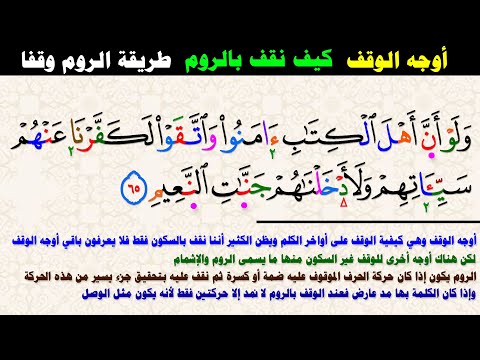 أوجه الوقف كيف نقف بالروم طريقة الروم وقفا
وَلَوْ أَنَّ أَهْلَ الْكِتَابِ ءَامَنُوا وَاتَّقَوْا لَكَفَّرْنَا عَنْهُمْ
سَيِّـَٔاتِهِمْ وَلَأَدْخَلْنَاهُمْ جَنَّاتِ النَّعِيمِ ٦٥
أوجه الوقف وهي كيفية الوقف على أواخر الكلم ويظن الكثير أننا نقف بالسكون فقط فلا يعرفون باقي أوجه الوقف
لكن هناك أوجه أخرى للوقف غير السكون منها ما يسمى الروم والإشمام
الروم يكون إذا كان حركة الحرف الموقوف عليه ضمة أو كسرة ثم نقف عليه بتحقيق جزء يسير من هذه الحركة
وإذا كان الكلمة بها مد عارض فعند الوقف بالروم لا نمد إلا حركتين فقط لأنه يكون مثل الوصل